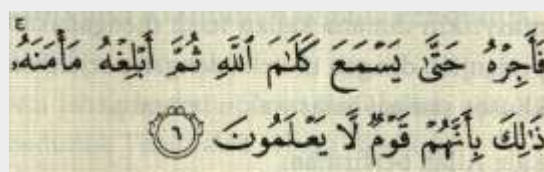 فَأَجِرْهُ حَتَّىٰ يَسْمَعَ كَلَٰمَ ٱللَّهِ ثُمَّ أَبْلِغْهُ مَأْمَنَهُۥۚ
ذَٰلِكَ بِأَنَّهُمْ قَوْمٌ لَّا يَعْلَمُونَ ٦